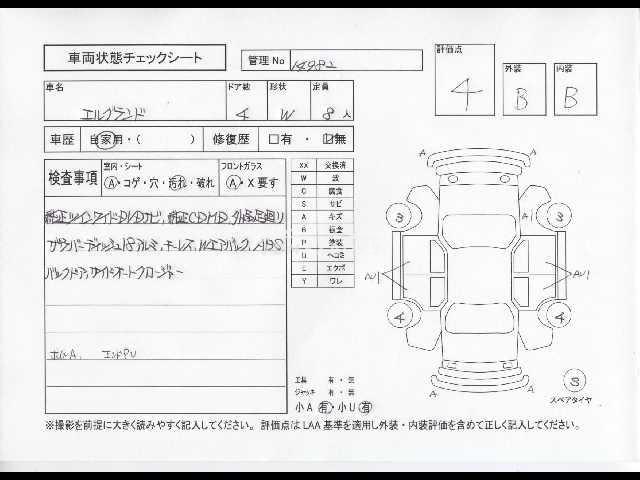 車両状態チェックシート
管理No 14982
評価点 4
外装 B
内装 B
車名 エルグランド
ドア数 4
形状 W
定員 8人
車歴 自家用・( )
修復歴 □有・☑無
検査事項
室内・シート
A・コゲ・穴・汚れ・破れ
フロントガラス
A・X要す
XX 交換済
W 波
C 腐食
S サビ
A キズ
B 板金
P 塗装
U ヘコミ
E エクボ
Y ワレ
純正ツインワイドDVDナビ、純正CDMD、外品足廻り
グランパーディッシュ18アルミ、キーレス、Wエアバック、ABS
バックドア、サイドオートクロージャー
ホイルA、エンドPU
A
A
3
A1
3
AU1
AU1
4
4
A
A
3
スペアタイヤ
工具 有・無
ジャッキ 有・無
小A 有・小U 有
※撮影を前提に大きく読みやすく記入してください。評価点はLAA基準を適用し外装・内装評価を含めて正しく記入してください。